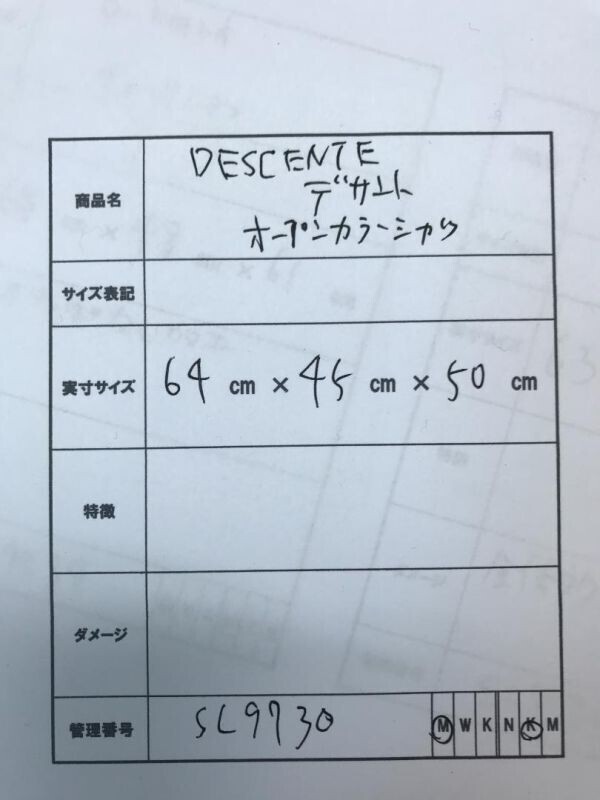 商品名
DESCENTE
デサント
オープンカラーシャツ
サイズ表記
実寸サイズ 64 cm × 45 cm × 50 cm
特徴
ダメージ
管理番号 SL9730 M W K N K M